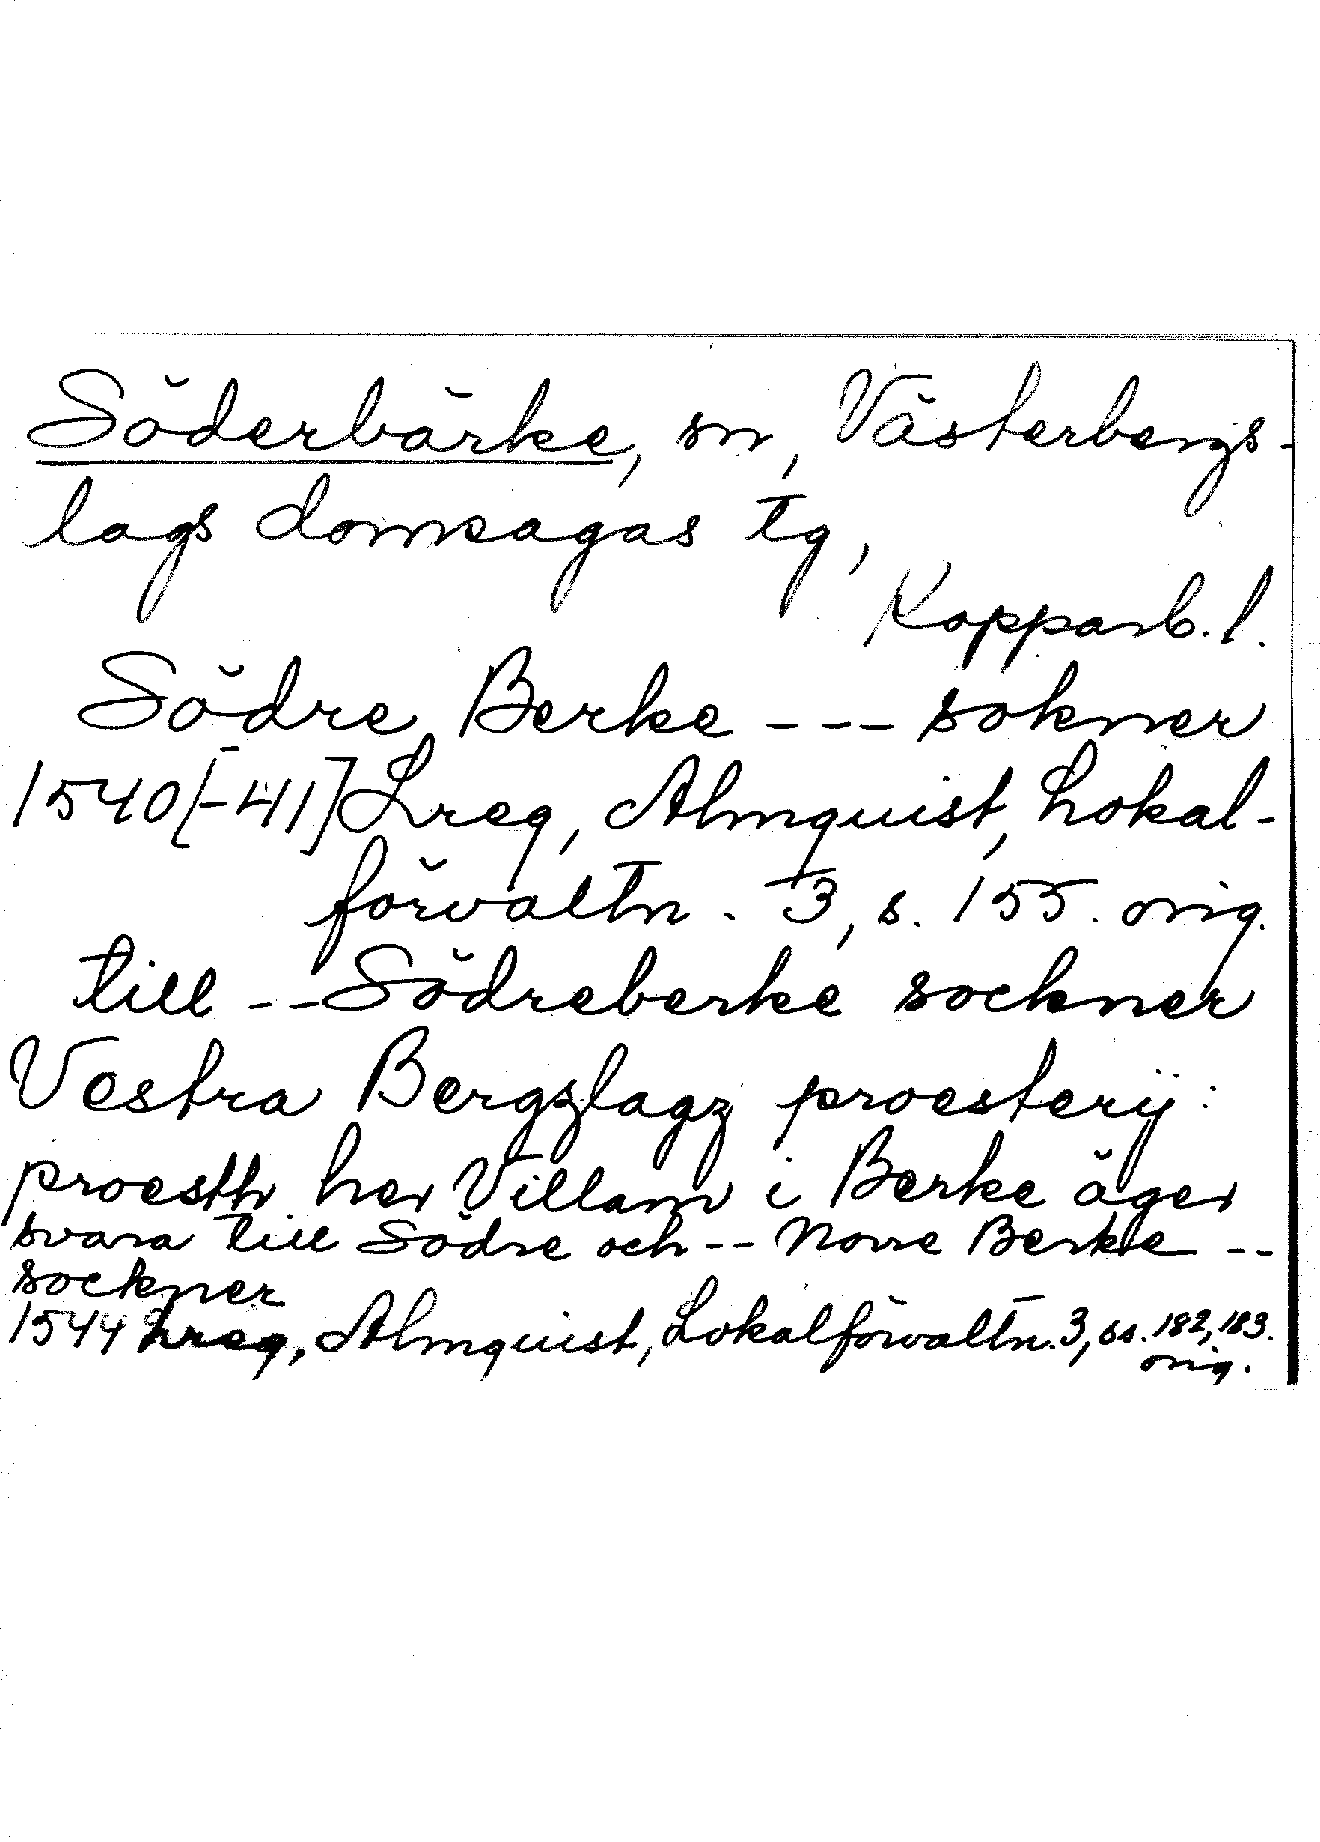 Söderbärke, sn, Västerbergs-
lags domsagas tg,
Kopparb. l.
Södre Berke --- sokner
1540[-41] Lreg, Almquist, Lokal-
förvaltn. 3, s. 155. orig.
till -- Södreberke sockner
Vestra Bergzlagz proesterij:
proesth her Villam i Berke äger
svara till Södre och -- Norre Berke --
sockner
1544 Lreg, Almquist, Lokalförvaltn. 3, ss. 182, 183.
orig.